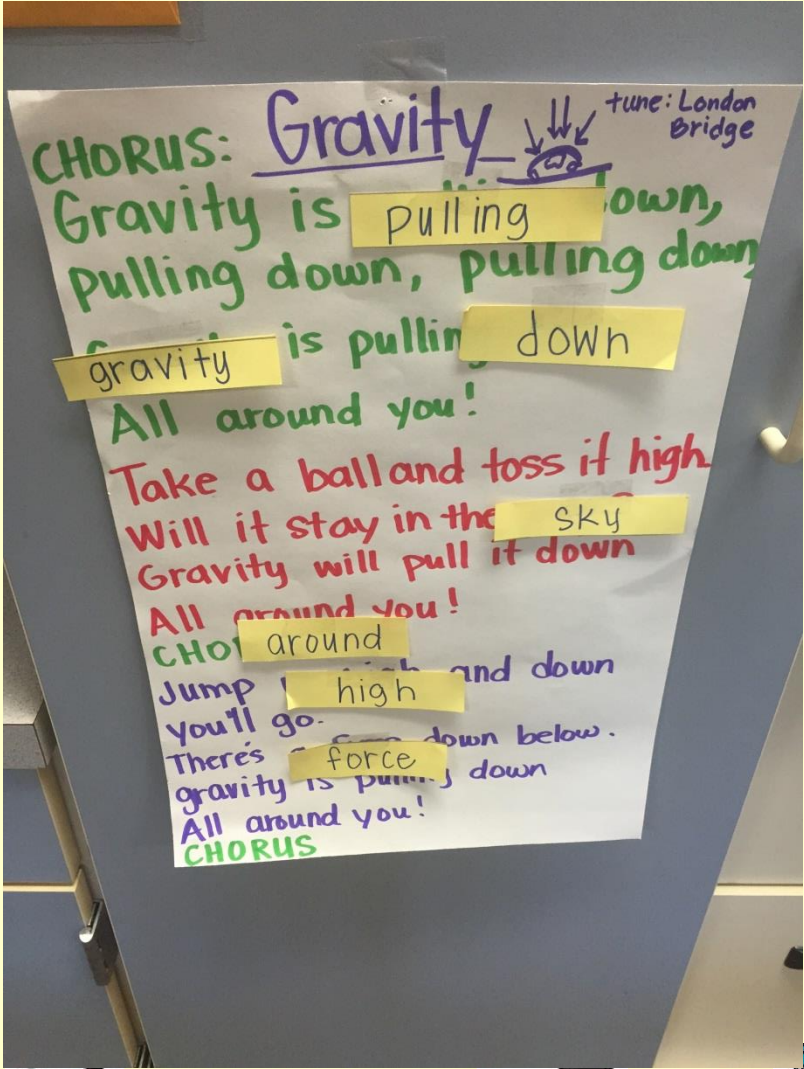 Gravity
tune: London
Bridge
CHORUS:
Gravity is pulling own,
pulling down, pulling down
gravity is pullin down
All around you!
Take a ball and toss it high.
Will it stay in the sky
Gravity will pull it down
All around you!
CHO around
Jump high and down
you'll go.
There's a force down below.
gravity is pulling down
All around you!
CHORUS